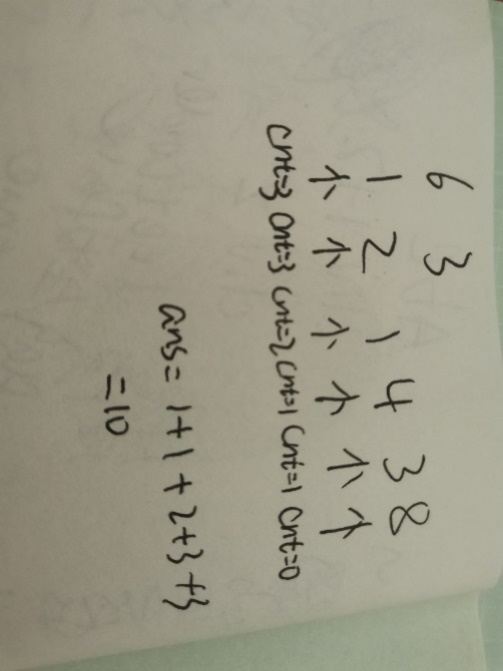 6 3
1 2 1 4 3 8
↑ ↑ ↑ ↑ ↑ ↑
cnt=3 cnt=3 cnt=2 cnt=1 cnt=1 cnt=0
ans= 1+1+2+3+3
=10